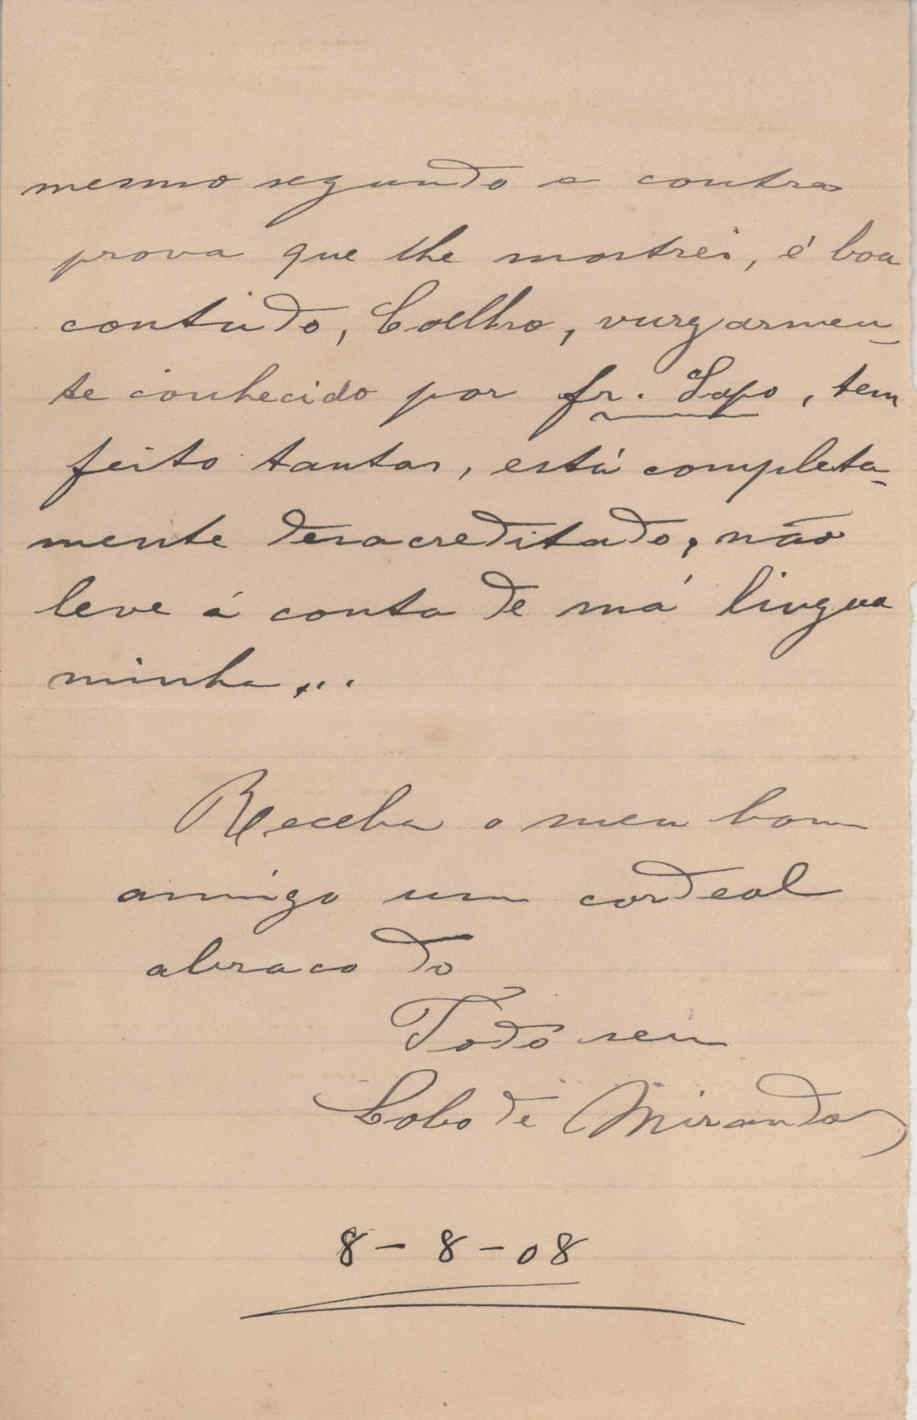 mesmo segundo a contra
prova que lhe mostrei, é boa
contudo, Coelho, vurgarmen-
te conhecido por fr. Sapo, tem
feito tantas, está completa-
mente desacreditado, não
leve á conta de má lingua
minha...
Receba o meu bom
amigo um cordeal
abraco do
Todo seu
Lobo de Miranda
8-8-08